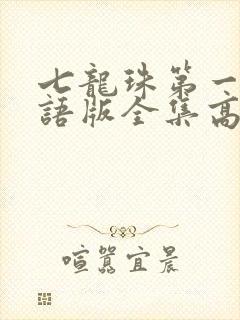 七龍珠第一
語版全集高
喧囂宜晨